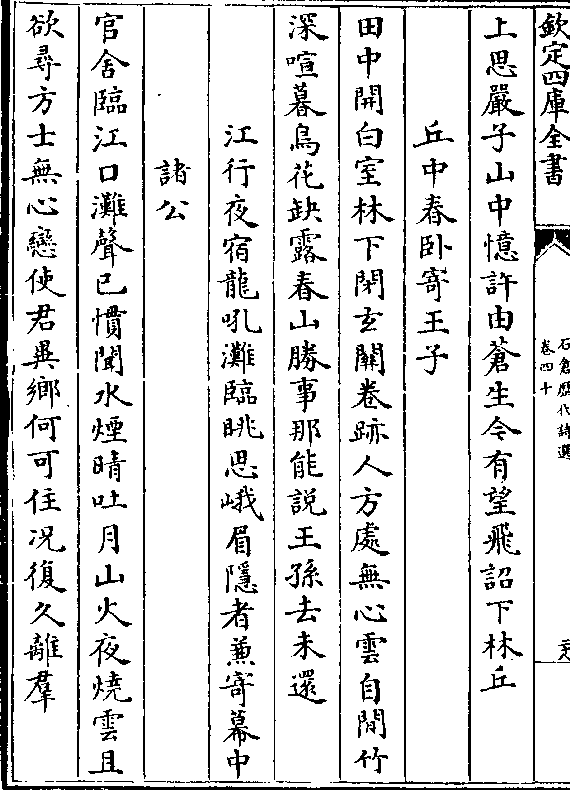 欽定四庫全書
石倉歷代詩選
卷四十
上思嚴子山中憶許由蒼生今有望飛詔下林丘
丘中春卧寄王子
田中開白室林下閉玄關卷跡人方處無心雲自閒竹
深喧暮鳥花缺露春山勝事那能説王孫去未還
江行夜宿龍吼灘臨眺思峨眉隱者兼寄幕中
諸公
官舍臨江口灘聲已慣聞水煙晴吐月山火夜燒雲且
欲尋方士無心戀使君異鄉何可住况復久離羣